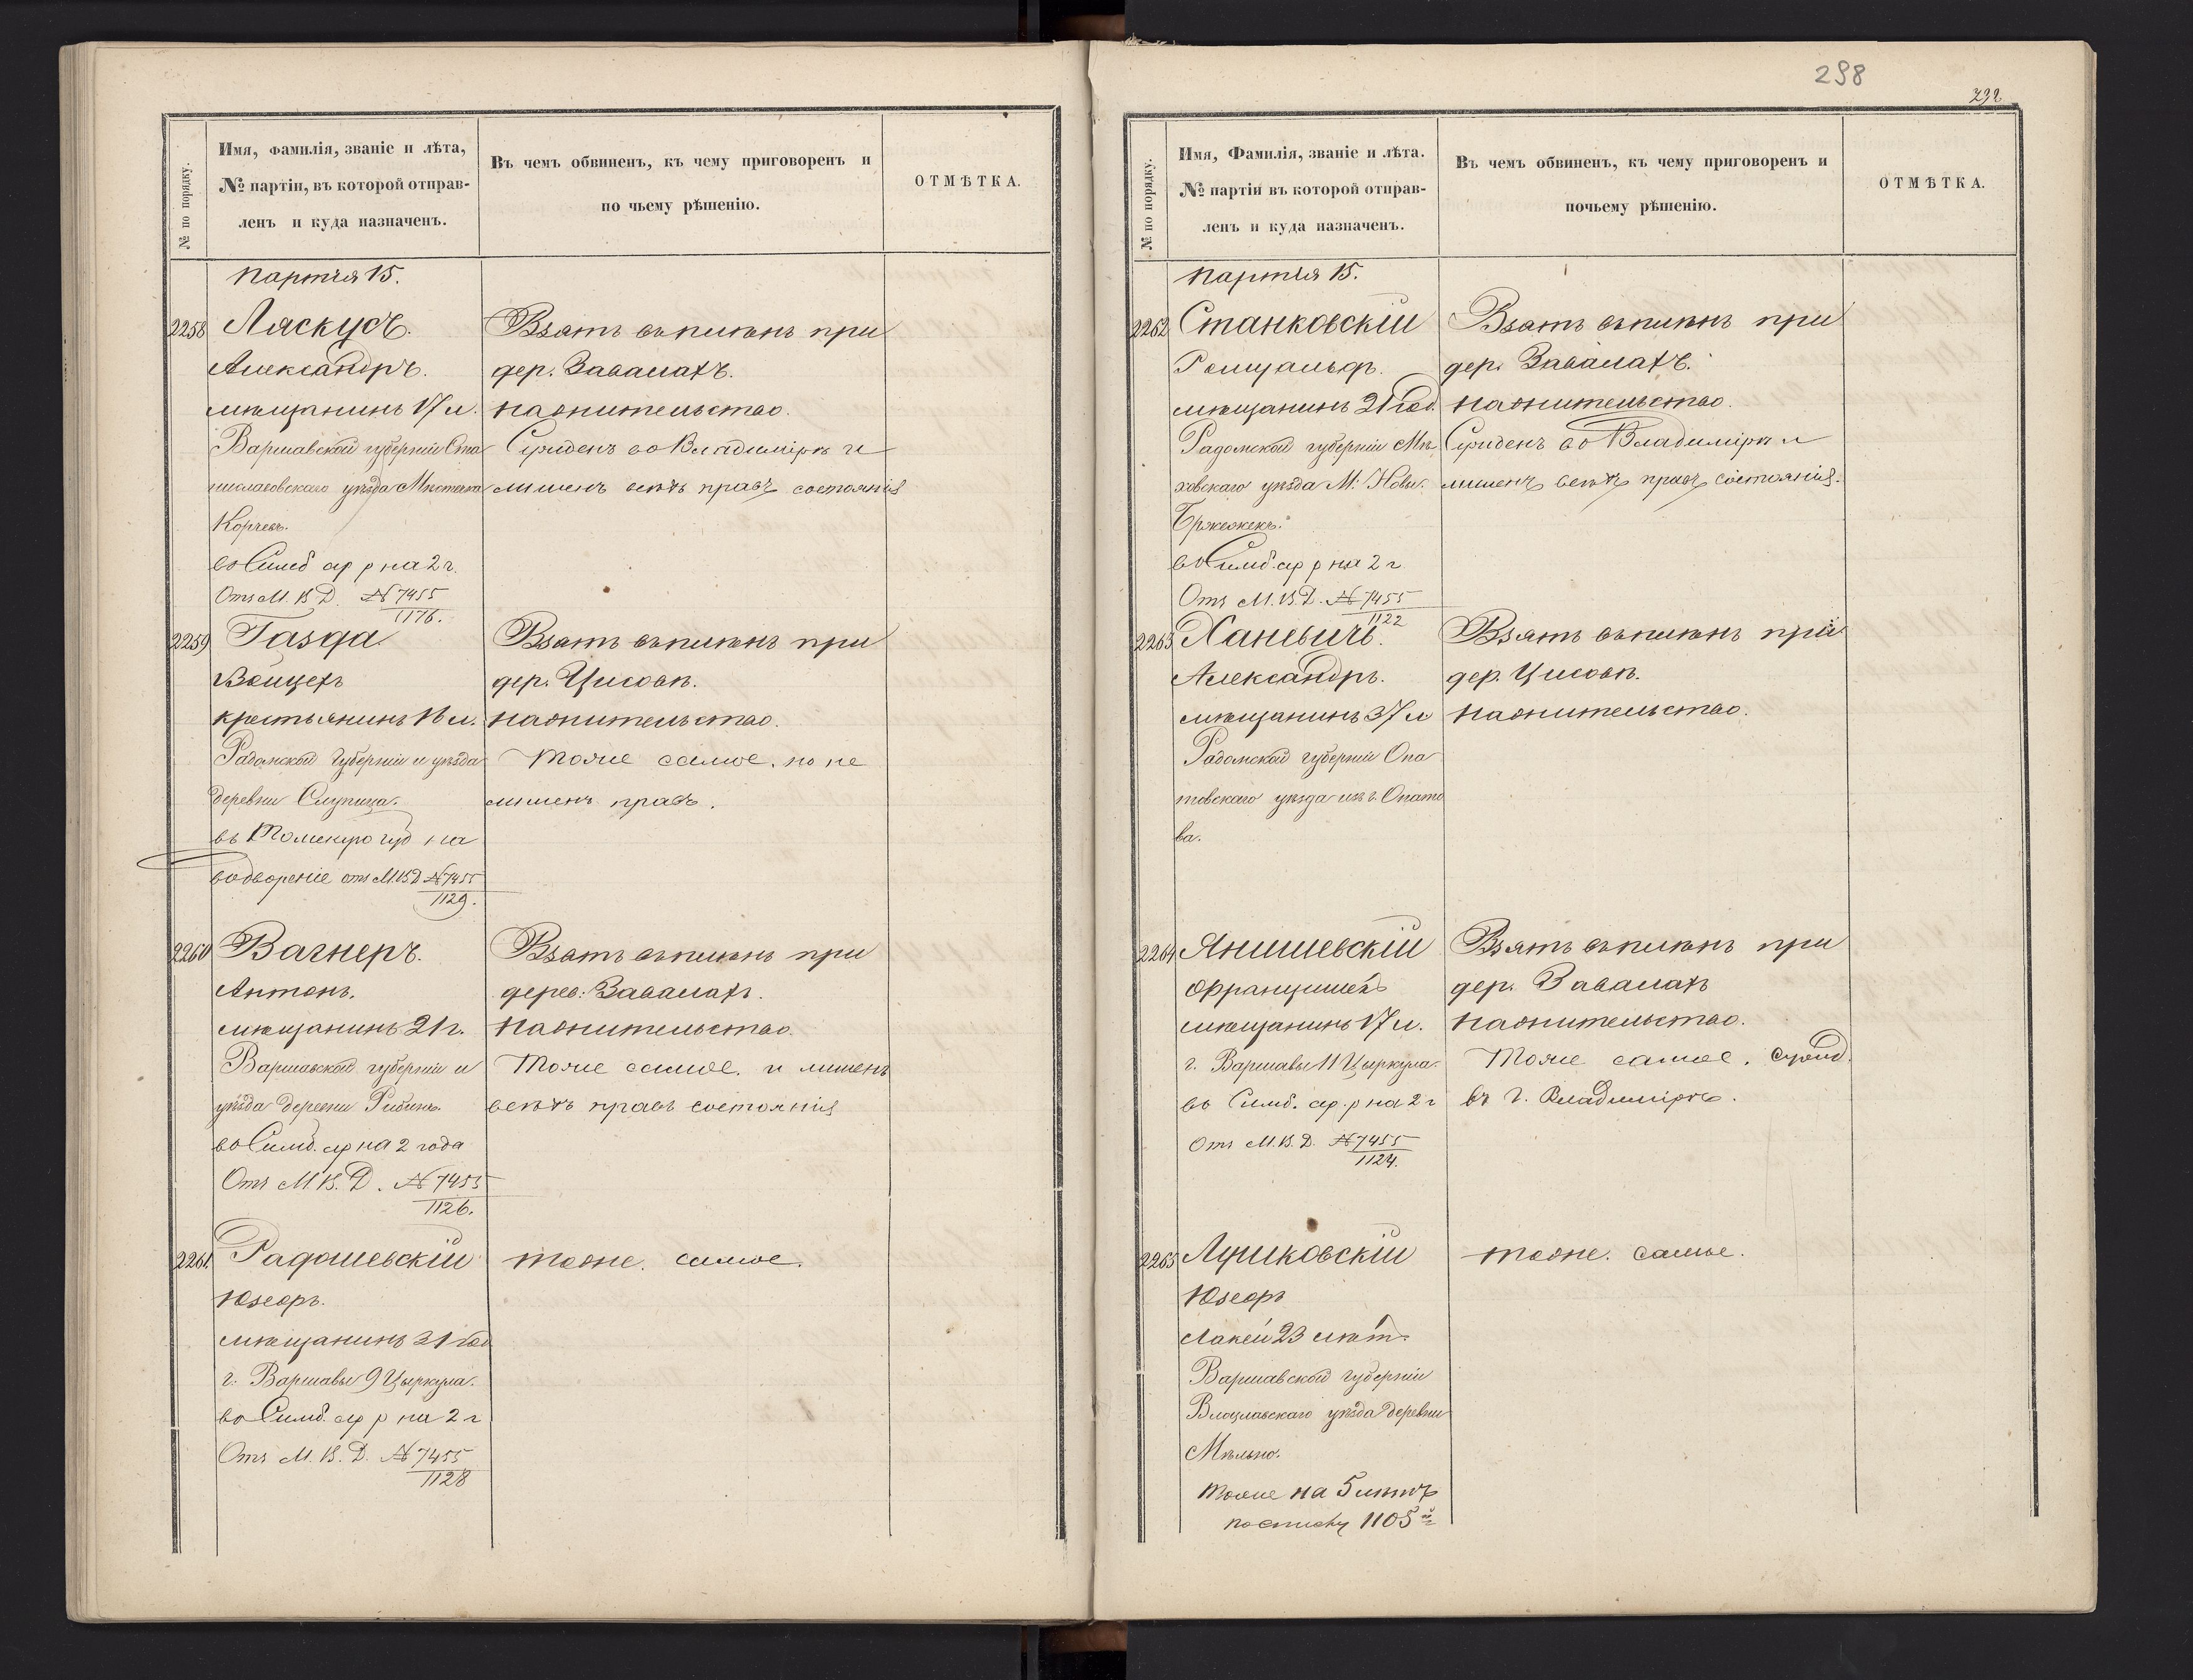 № по порядку.
Имя, фамилія, званіе и лѣта,
№ партіи, въ которой отправ-
ленъ и куда назначенъ.
Въ чемъ обвиненъ, къ чему приговоренъ и
по чьему рѣшенію.
ОТМѢТКА.
Партія 15.
2258 Ляскусъ.
Александръ.
мѣщанинъ 17 л.
Варшавской губерніи Ста
ниславовскаго уѣзда Мѣстечка
Корчевъ.
во Симб ар р на 2 г.
Отъ М. В. Д. № 7455
1176.
Взятъ въ плѣнъ при
дер. Завалахъ.
на жительство.
Сужденъ во Владимірѣ и
лишенъ всѣхъ правъ состоянія
2259 Газда
Войцехъ
крестьянинъ 18 л.
Радомской Губерніи и уѣзда
деревни Слупица.
въ Томскую губ на
водвореніе отъ М. В. Д. № 7455
1129.
Взятъ въ плѣнъ при
дер. Цисовѣ.
на жительство.
Тоже самое, но не
лишенъ правъ.
2260 Вагнеръ.
Антонъ.
мѣщанинъ 21 г.
Варшавской губерніи и
уѣзда деревни Рыбинъ.
во Симб. ар на 2 года
Отъ М. В. Д. № 7455
1126.
Взятъ въ плѣнъ при
дерев: Завалахъ.
на жительство.
Тоже самое. и лишенъ
всѣхъ правъ состоянія
2261. Радошевскій
Юзефъ.
мѣщанинъ 31 год
г. Варшавы 9 Цыркула.
во Симб. ар р на 2 г
Отъ М. В. Д. № 7455
1128
тоже. самое.
298
292
№ по порядку.
Имя, Фамилія, званіе и лѣта.
№ партіи въ которой отправ-
ленъ и куда назначенъ.
Въ чемъ обвиненъ, къ чему приговоренъ и
почьему рѣшенію.
ОТМѢТКА.
Партія 15.
2262 Станковскій
Ромуальдъ.
мѣщанинъ 21 год.
Радомской губерніи Мѣ
ховскаго уѣзда М. Новы.
Бржежекъ.
во Симб. ар р на 2 г
Отъ М. В. Д. № 7455
1122
Взятъ въ плѣнъ при
дер. Завалахъ.
на жительство.
Сужденъ во Владимірѣ и
лишенъ всѣхъ правъ состоянія.
2263 Ханевичъ.
Александръ.
мѣщанинъ 37 л
Радомской губерніи Опа
товскаго уѣзда изъ г. Опато
ва.
Взятъ въ плѣнъ при
дер. Цисовѣ.
на жительство.
2264 Янишевскій
Францишекъ
мѣщанинъ 17 л.
г. Варшавы 11 Цыркула.
во Симб. ар. р на 2 г
Отъ М. В. Д. № 7455
1124.
Взятъ въ плѣнъ при
дер. Завалахъ
на жительство.
Тоже самое. сужд.
въ г. Владимірѣ.
2265 Лушковскій
Юзефъ
Лакей 23 лѣт.
Варшавской губерніи
Влоцлавскаго уѣзда деревни
Мѣльно.
тоже на 5 лѣтъ
по списку 1105й
тоже. самое.